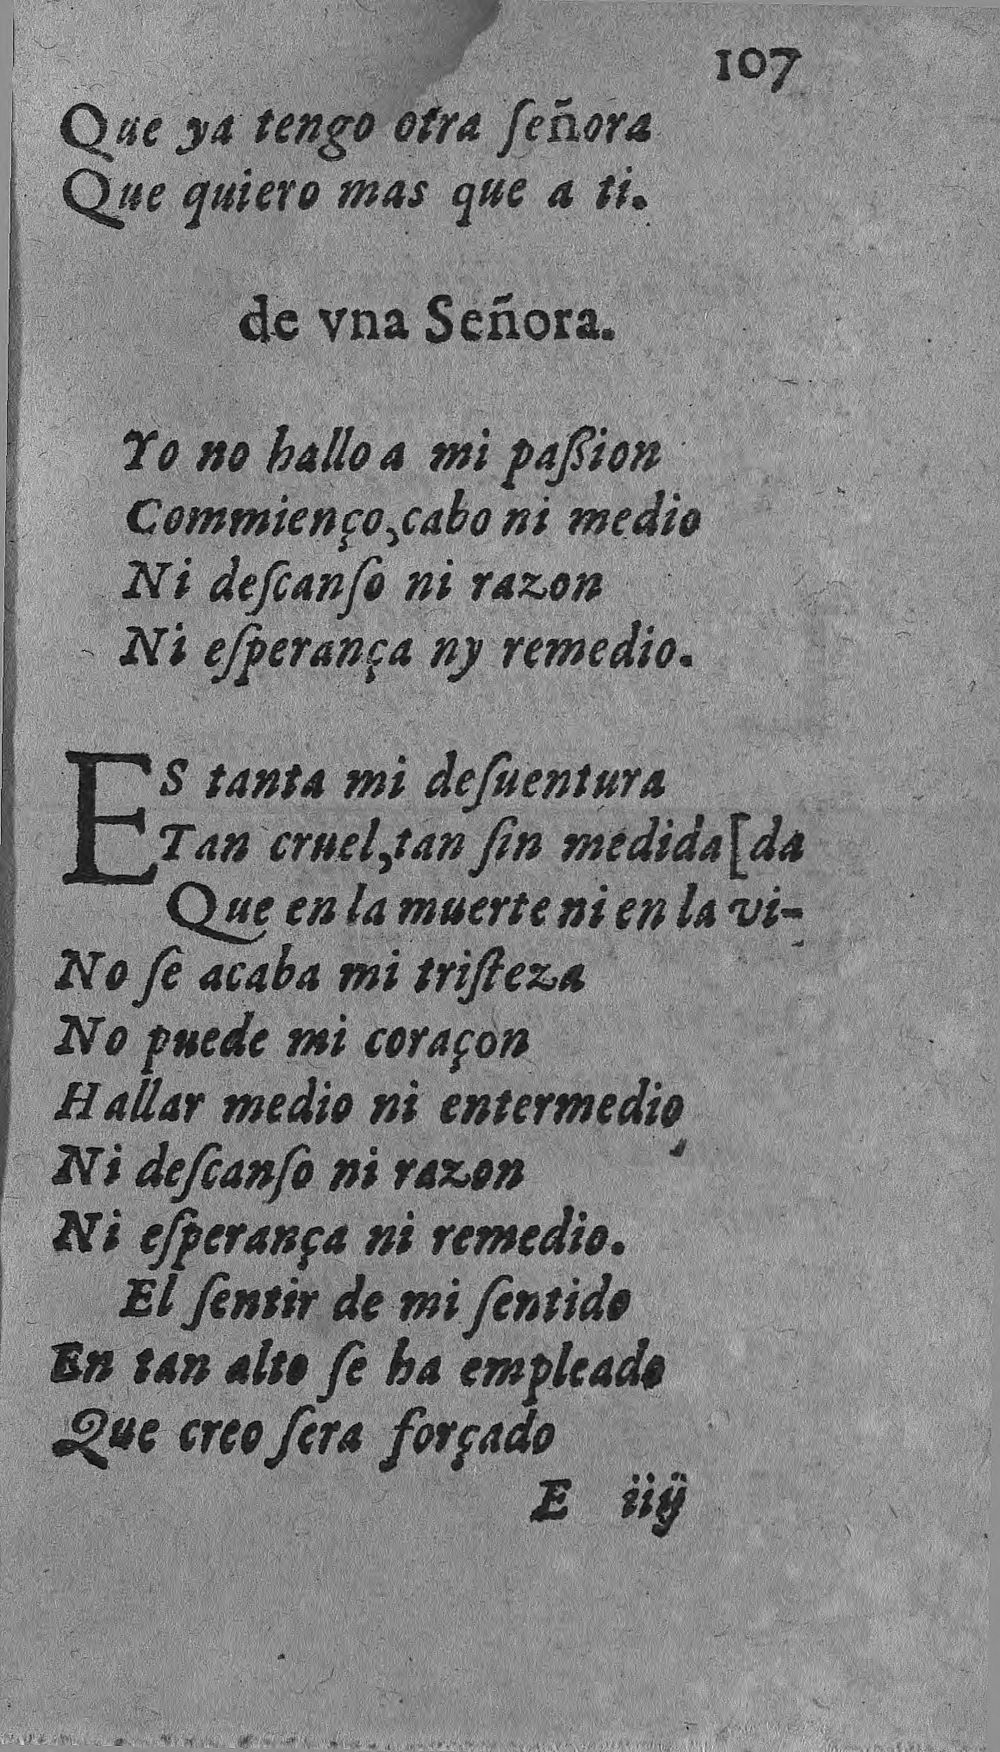 107
Que ya tengo otra ſeñora
Que quiero mas que a ti.
de vna Señora.
Yo no hallo a mi paſsion
Commienço,cabo ni medio
Ni deſcanſo ni razon
Ni eſperança ny remedio.
ES tanta mi deſuentura
Tan cruel,tan ſin medida[da
Que en la muerte ni en la vi-
No ſe acaba mi triſteza
No puede mi coraçon
Hallar medio ni entermedio
Ni deſcanſo ni razon
Ni eſperança ni remedio.
El ſentir de mi ſentido
En tan alto ſe ha empleado
Que creo ſera forçado
E iiij